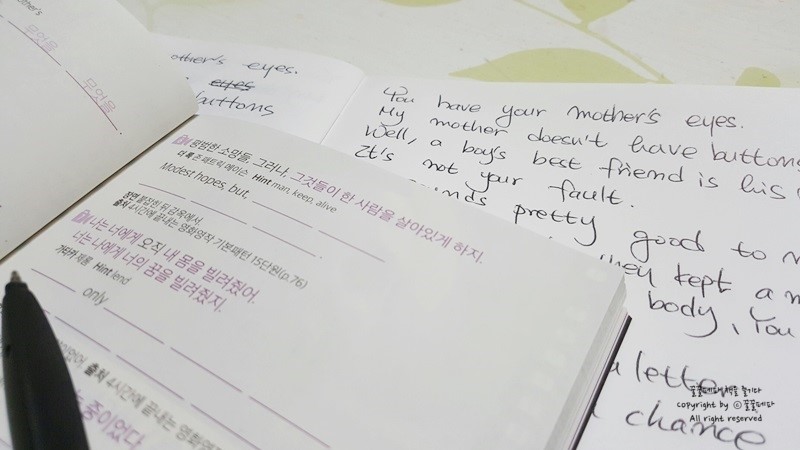 other's
무엇을
무엇을
other's eyes.
eyes
buttons
You have your mother's eyes.
My mother doesn't have buttons
Well, a boy's best friend is his
It's not your fault.
pretty good to
they kept a
body, You
letter
chance
평범한 소망들, 그러나, 그것들이 한 사람을 살아있게 하지.
더 록 존 패트릭 메이슨 Hint man, keen, alive
Modest hopes, but,
장면 붙잡힌 뒤 감옥에서
출처 4시간에 끝내는 영화영작 기본패턴 15단원(p.76)
나는 너에게 오직 내 몸을 빌려줬어.
너는 나에게 너의 꿈을 빌려줬지.
가타카 제롬 Hint lend
only
출처 4시간에 끝내는 영화영작
중이었다
copyright by ⓒ
All right reserved